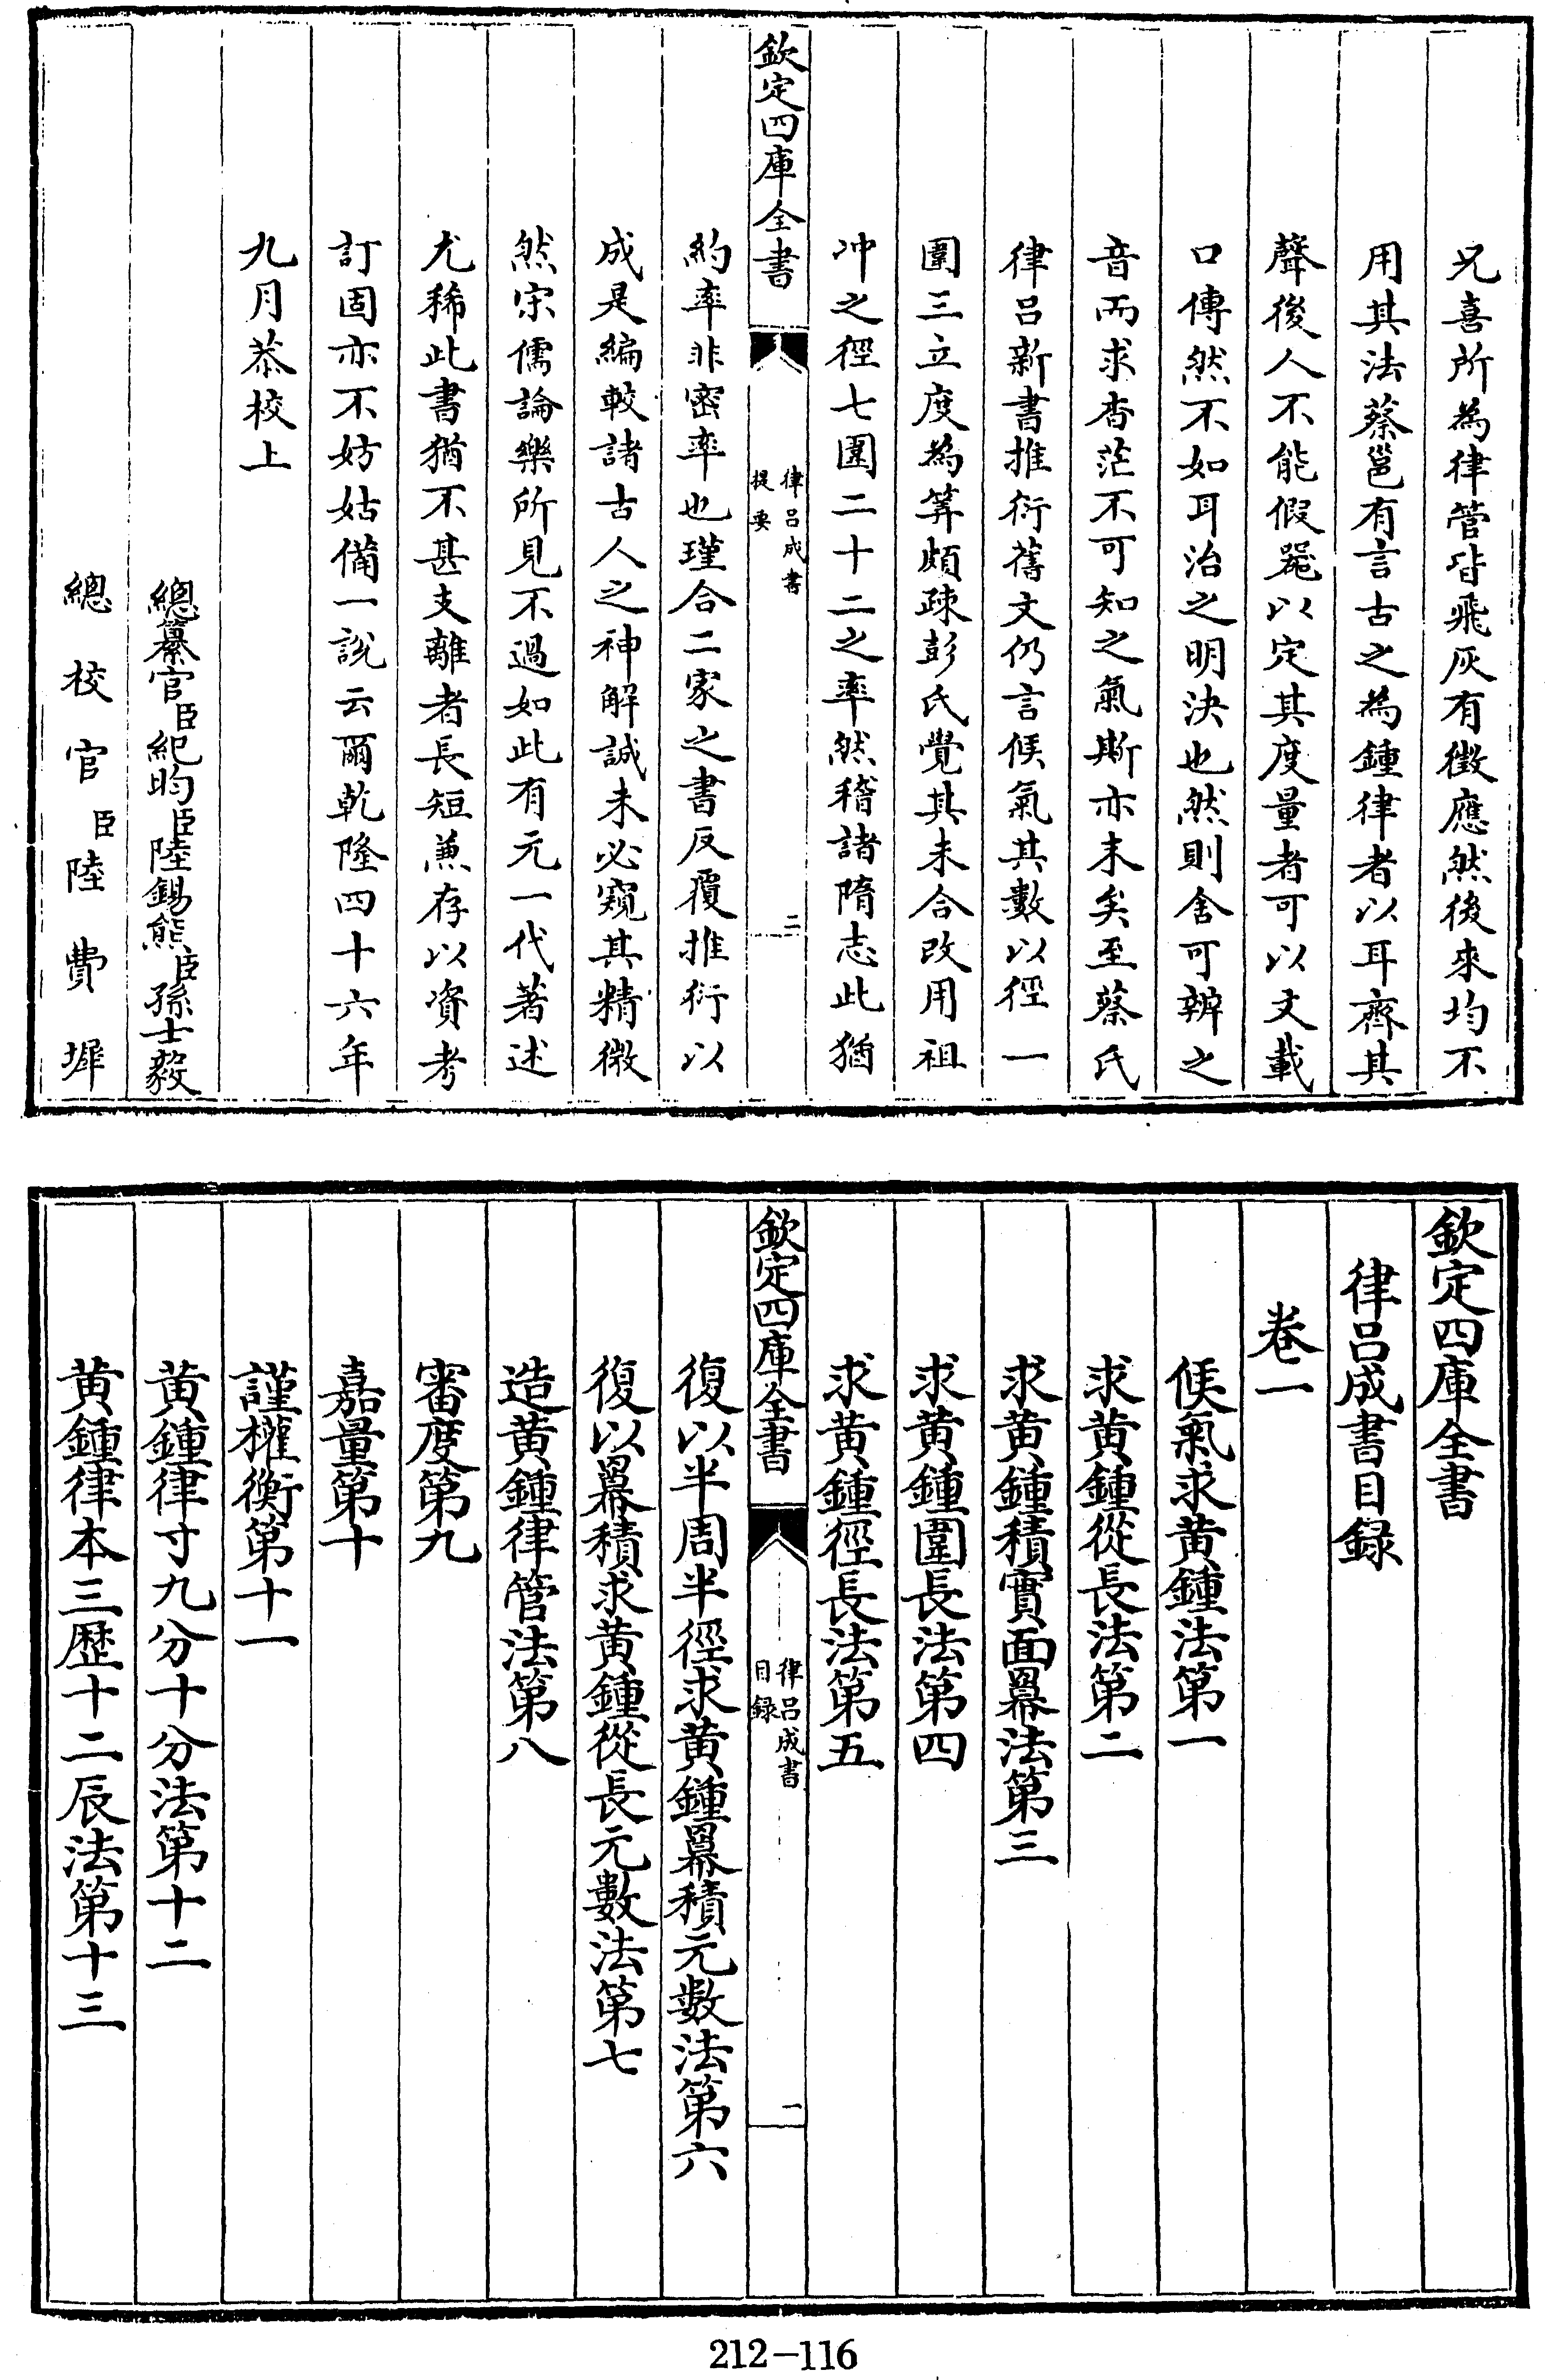 兄喜所為律管皆飛灰有徴應然後來均不
用其法蔡邕有言古之為鍾律者以耳齊其
聲後人不能假器以定其度量者可以文載
口傳然不如耳治之明決也然則舍可辨之
音而求杳茫不可知之氣斯亦末矣至蔡氏
律呂新書推衍舊文仍言候氣其數以徑一
圍三立度為筭頗疎彭氏覺其未合改用祖
冲之徑七圍二十二之率然稽諸隋志此猶
欽定四庫全書
律呂成書
提要
二
約率非密率也瑾合二家之書反覆推衍以
成是編較諸古人之神解誠未必窺其精微
然宋儒論樂所見不過如此有元一代著述
尤稀此書猶不甚支離者長短兼存以資考
訂固亦不妨姑備一說云爾乾隆四十六年
九月恭校上
總纂官臣紀昀臣陸錫熊臣孫士毅
總校官臣陸費墀
欽定四庫全書
律呂成書目録
卷一
候氣求黄鍾法第一
求黄鍾從長法第二
求黄鍾積實面羃法第三
求黄鍾圍長法第四
求黄鍾徑長法第五
欽定四庫全書
律呂成書
目録
一
復以半周半徑求黄鍾羃積元數法第六
復以羃積求黄鍾從長元數法第七
造黄鍾律管法第八
審度第九
嘉量第十
謹權衡第十一
黄鍾律寸九分十分法第十二
黄鍾律本三歴十二辰法第十三
212-116